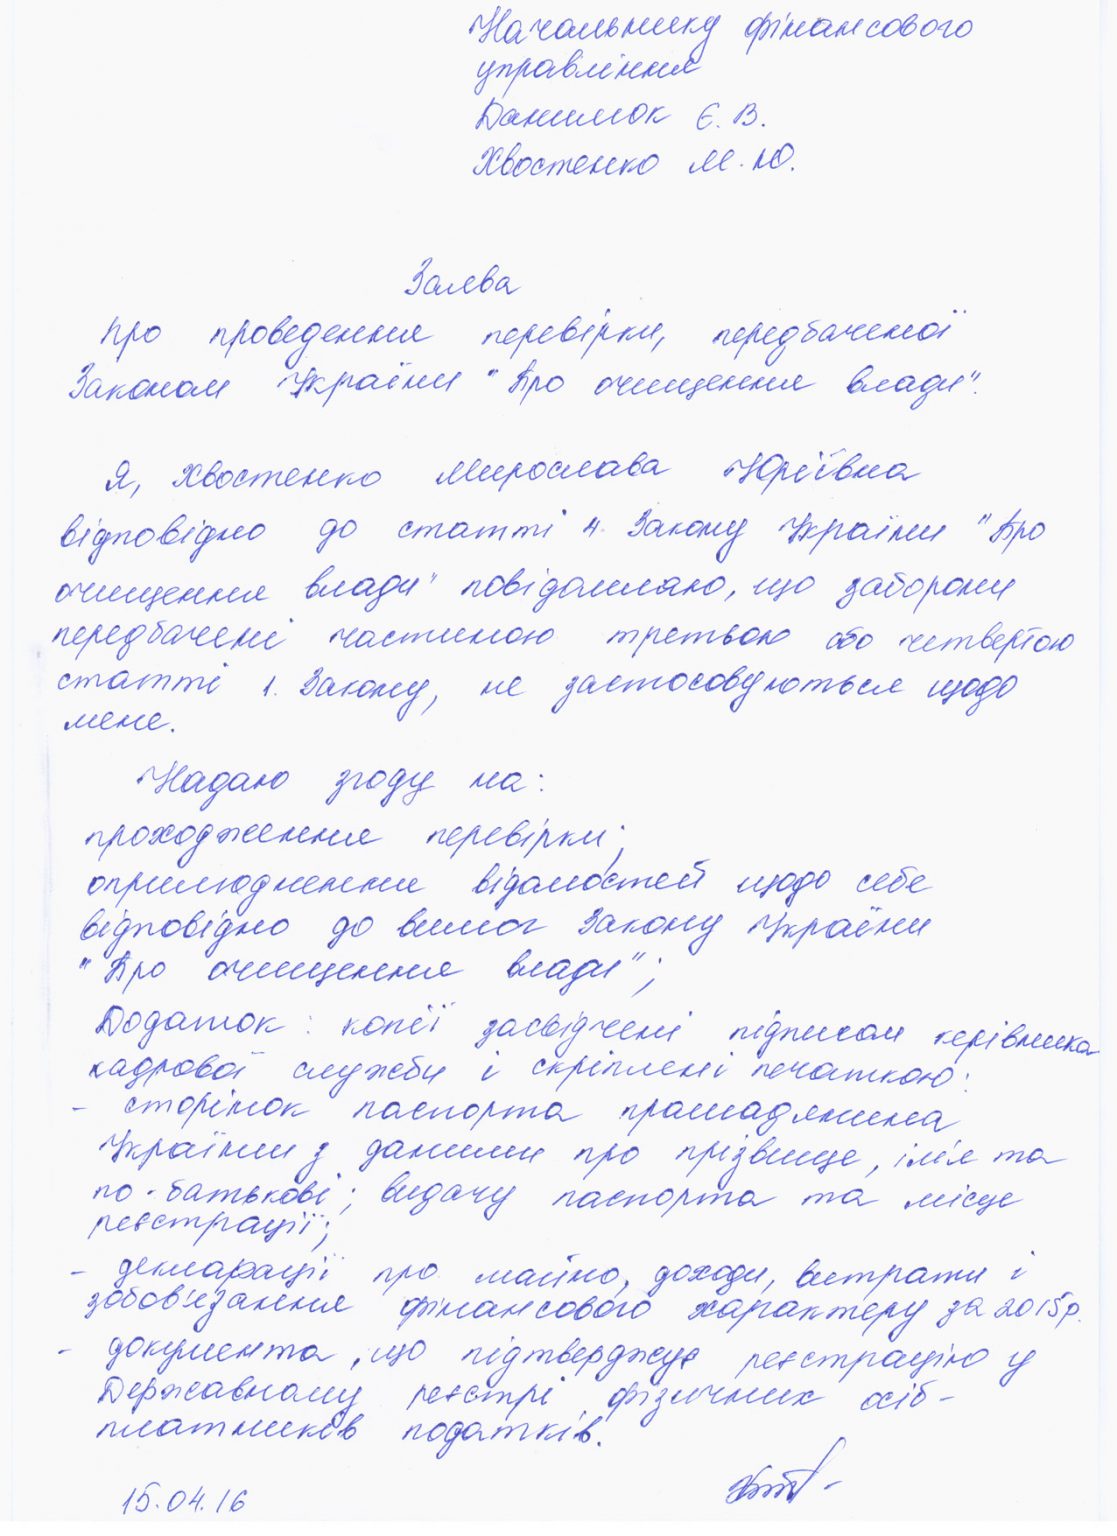 Начальнику фінансового
управління
Данилюк Є. В.
Хвостенко М. Ю.
Заява
про проведення перевірки, передбаченої
Законом України "Про очищення влади".
Я, Хвостенко Мирослава Юріївна
відповідно до статті 4. Закону України "Про
очищення влади" повідомляю, що заборони
передбачені частиною третьою або четвертою
статті 1. Закону, не застосовуються щодо
мене.
Надаю згоду на:
проходження перевірки;
оприлюднення відомостей щодо себе
відповідно до вимог Закону України
"Про очищення влади";
Додаток: копії засвідчені підписом керівника
кадрової служби і скріплені печаткою:
- сторінок паспорта громадянина
України з даними про прізвище, ім'я та
по-батькові; видачу паспорта та місце
реєстрації;
- декларації про майно, доходи, витрати і
зобов'язання фінансового характеру за 2015р.
- документа, що підтверджує реєстрацію у
Державному реєстрі фізичних осіб-
платників податків.
15.04.16